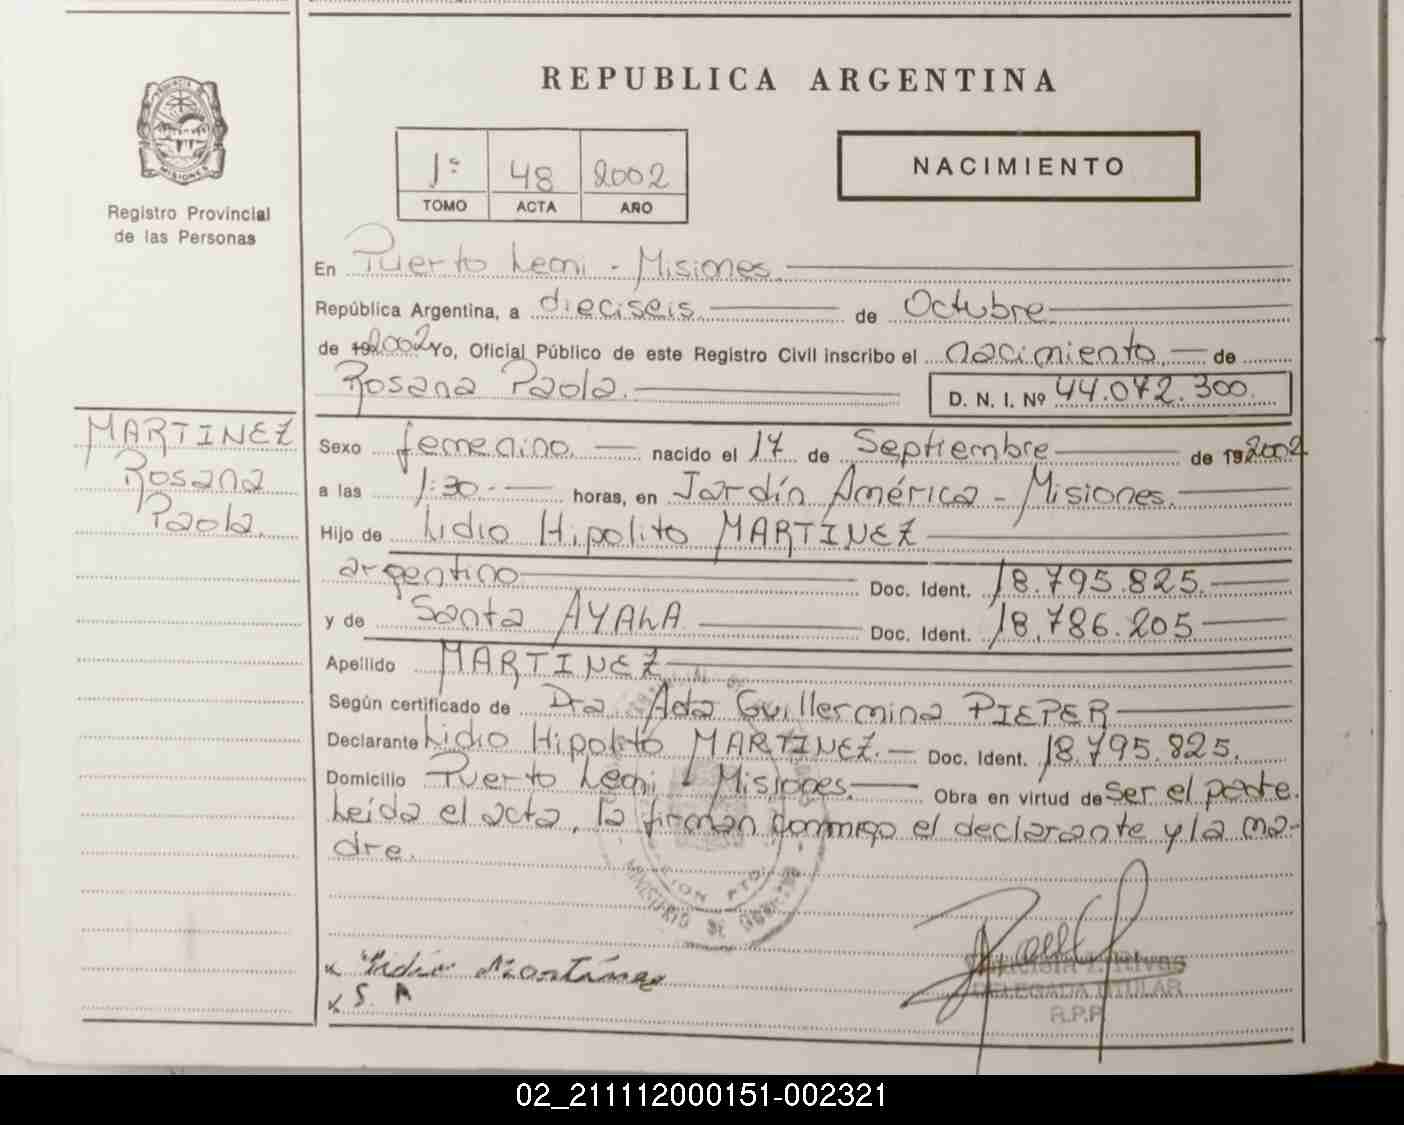 REPUBLICA ARGENTINA
PROVINCIA DE
MISIONES
Registro Provincial
de las Personas
1º 48 2002
TOMO ACTA AÑO
NACIMIENTO
En Puerto Leoni - Misiones
República Argentina, a dieciseis de Octubre
de 192002 Yo, Oficial Público de este Registro Civil inscribo el nacimiento de
Rosana Paola. D. N. I. Nº 44.072.300.
MARTINEZ
Rosana
Paola.
Sexo femenino nacido el 17 de Septiembre de 192002
a las 1:30 horas, en Jardín América - Misiones.
Hijo de Lidio Hipolito MARTINEZ
argentino Doc. Ident. 18.795.825.
y de Santa AYALA Doc. Ident. 18.786.205
Apellido MARTINEZ
Según certificado de Dra. Ada Guillermina PIEPER
Declarante Lidio Hipolito MARTINEZ. Doc. Ident. 18.795.825.
Domicilio Puerto Leoni - Misiones. Obra en virtud de Ser el padre.
Leída el acta, la firman conmigo el declarante y la ma-
dre.
MINISTERIO DE GOBIERNO
x Lidio Martinez
x S. A
Rivas
DELEGADA TITULAR
R.P.P.
02_211112000151-002321